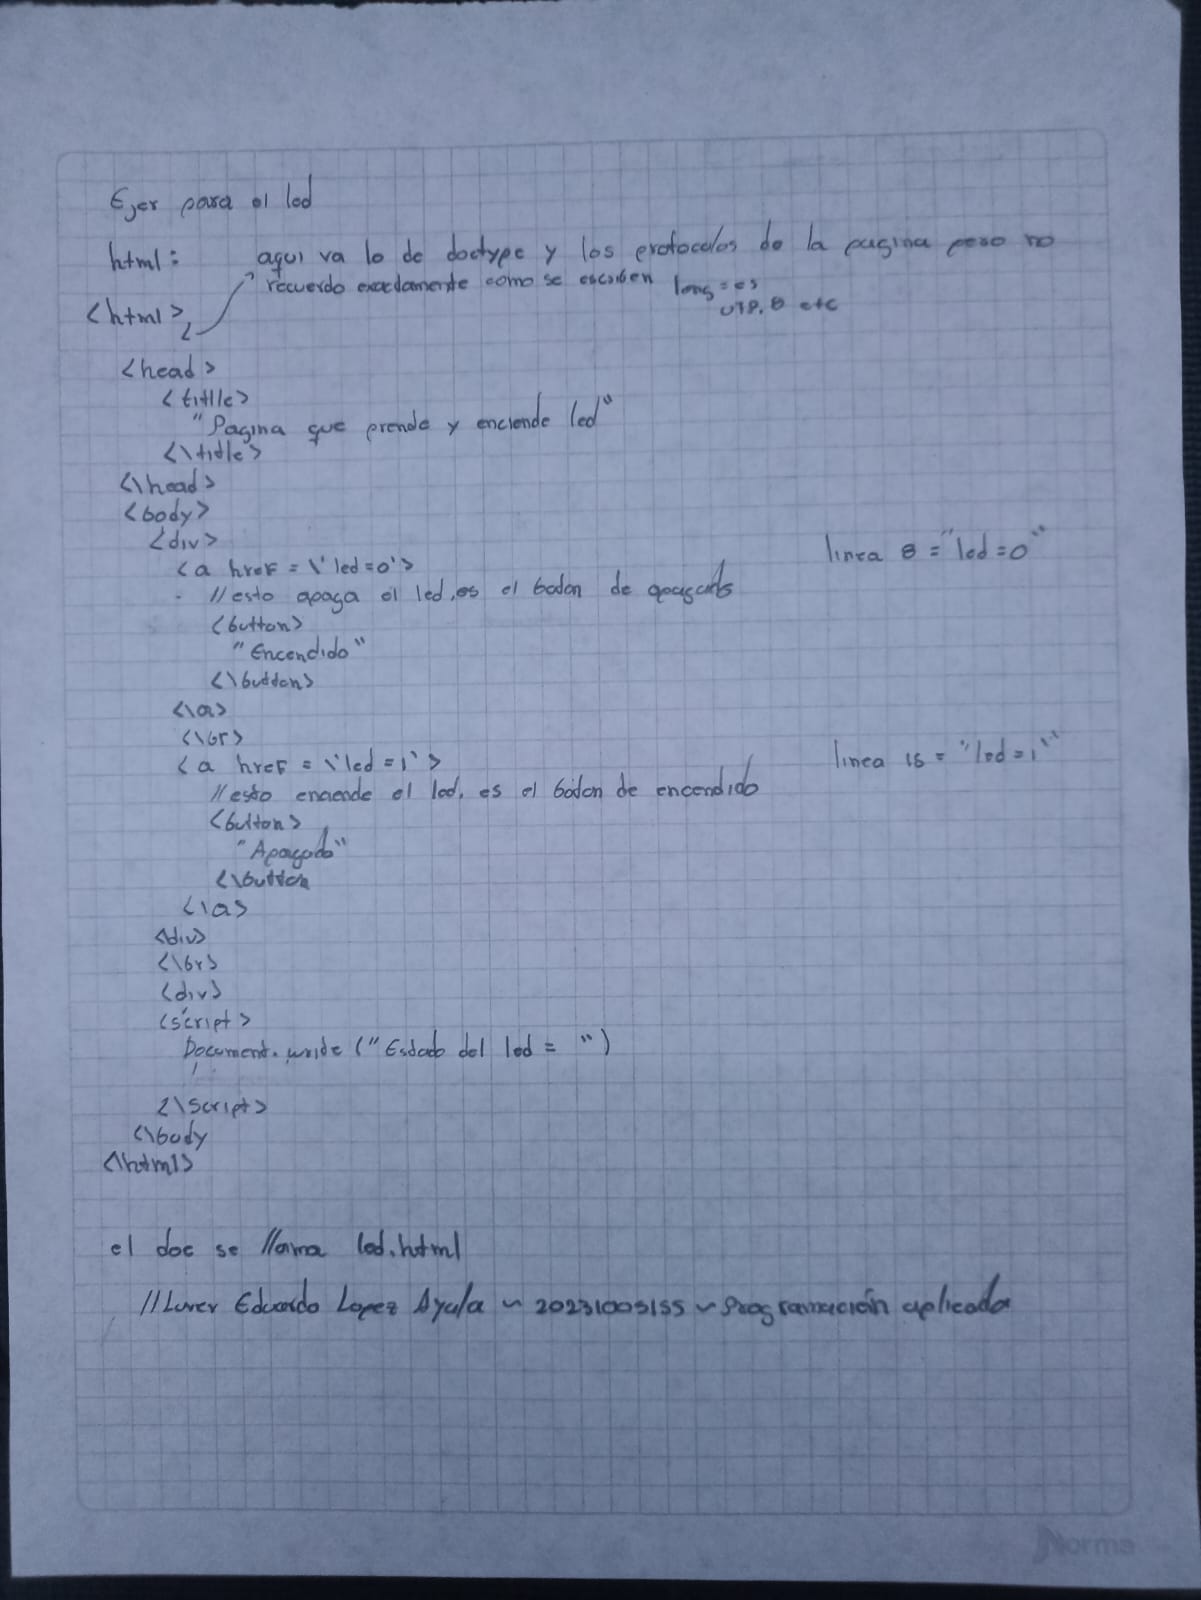 Ejer para el led
html: aqui va lo de doctype y los protocolos de la pagina pero no
recuerdo exactamente como se escriben lang=es
UTP.8 etc
<html>
<head>
<titlle>
"Pagina que prende y enciende led"
<\title>
<\head>
<body>
<div>
<a href = \'led=0'> linea 8 = "led=0"
//esto apaga el led, es el boton de apagado
<button>
"Encendido"
<\button>
<\a>
<\br>
<a href = \'led=1'> linea 15 = "led=1"
//esto enciende el led, es el boton de encendido
<button>
"Apagado"
<\button
<\a>
<div>
<\br>
<div>
<script>
Document.write ("Estado del led = ")
<\script>
<\body
<\html>
el doc se llama led.html
// Eduardo Lopez Ayala ~ 20231005155 ~ Programación aplicada
Norma